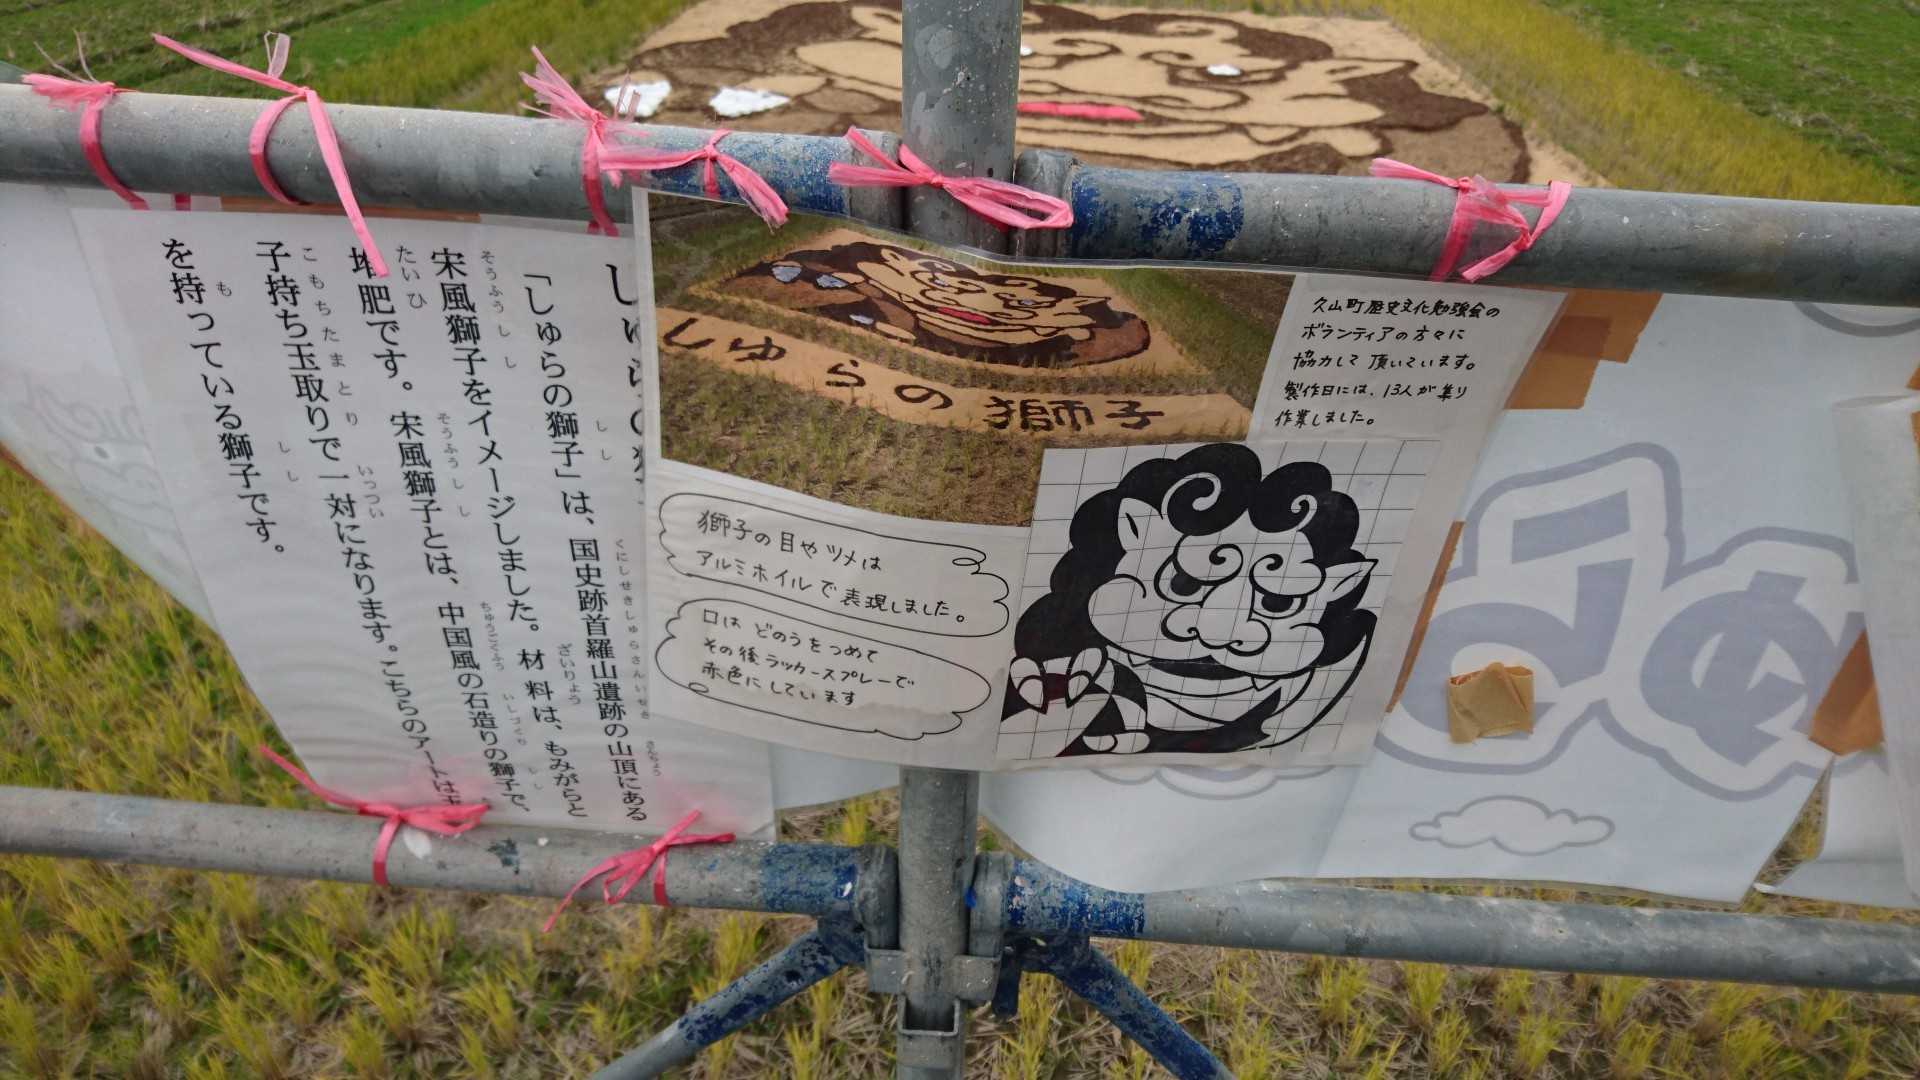 しゅらの
「しゅらの獅子」は、国史跡首羅山遺跡の山頂にある
宋風獅子をイメージしました。材料は、もみがらと
堆肥です。宋風獅子とは、中国風の石造りの獅子で、
子持ち玉取りで一対になります。こちらのアートは玉
を持っている獅子です。
しゅらの獅子
久山町歴史文化勉強会の
ボランティアの方々に
協力して頂いています。
製作日には、13人が集り
作業しました。
獅子の目やツメは
アルミホイルで表現しました。
口はどのうをつめて
その後ラッカースプレーで
赤色にしています